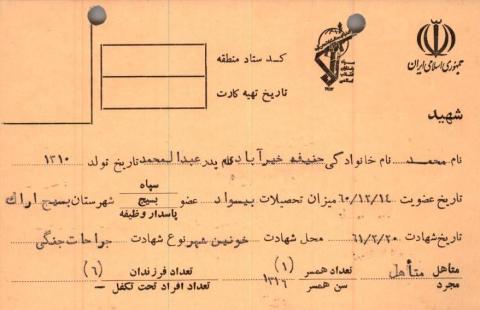 جمهوری اسلامی ایران
کد ستاد منطقه
تاریخ تهیه کارت
شهید
نام محمد نام خانوادگی حنیفه خیرآبادی نام پدر عبدالمحمد تاریخ تولد ۱۳۱۰
تاریخ عضویت ۶۰/۱۲/۱۴ میزان تحصیلات بیسواد عضو سپاه بسیج پاسدار وظیفه شهرستان بسیج اراک
تاریخ شهادت ۶۱/۲/۲۰ محل شهادت خونین شهر نوع شهادت جراحات جنگی
متاهل مجرد متأهل تعداد همسر (۱) سن همسر ۱۳۱۶ تعداد فرزندان (۶) تعداد افراد تحت تکفل —